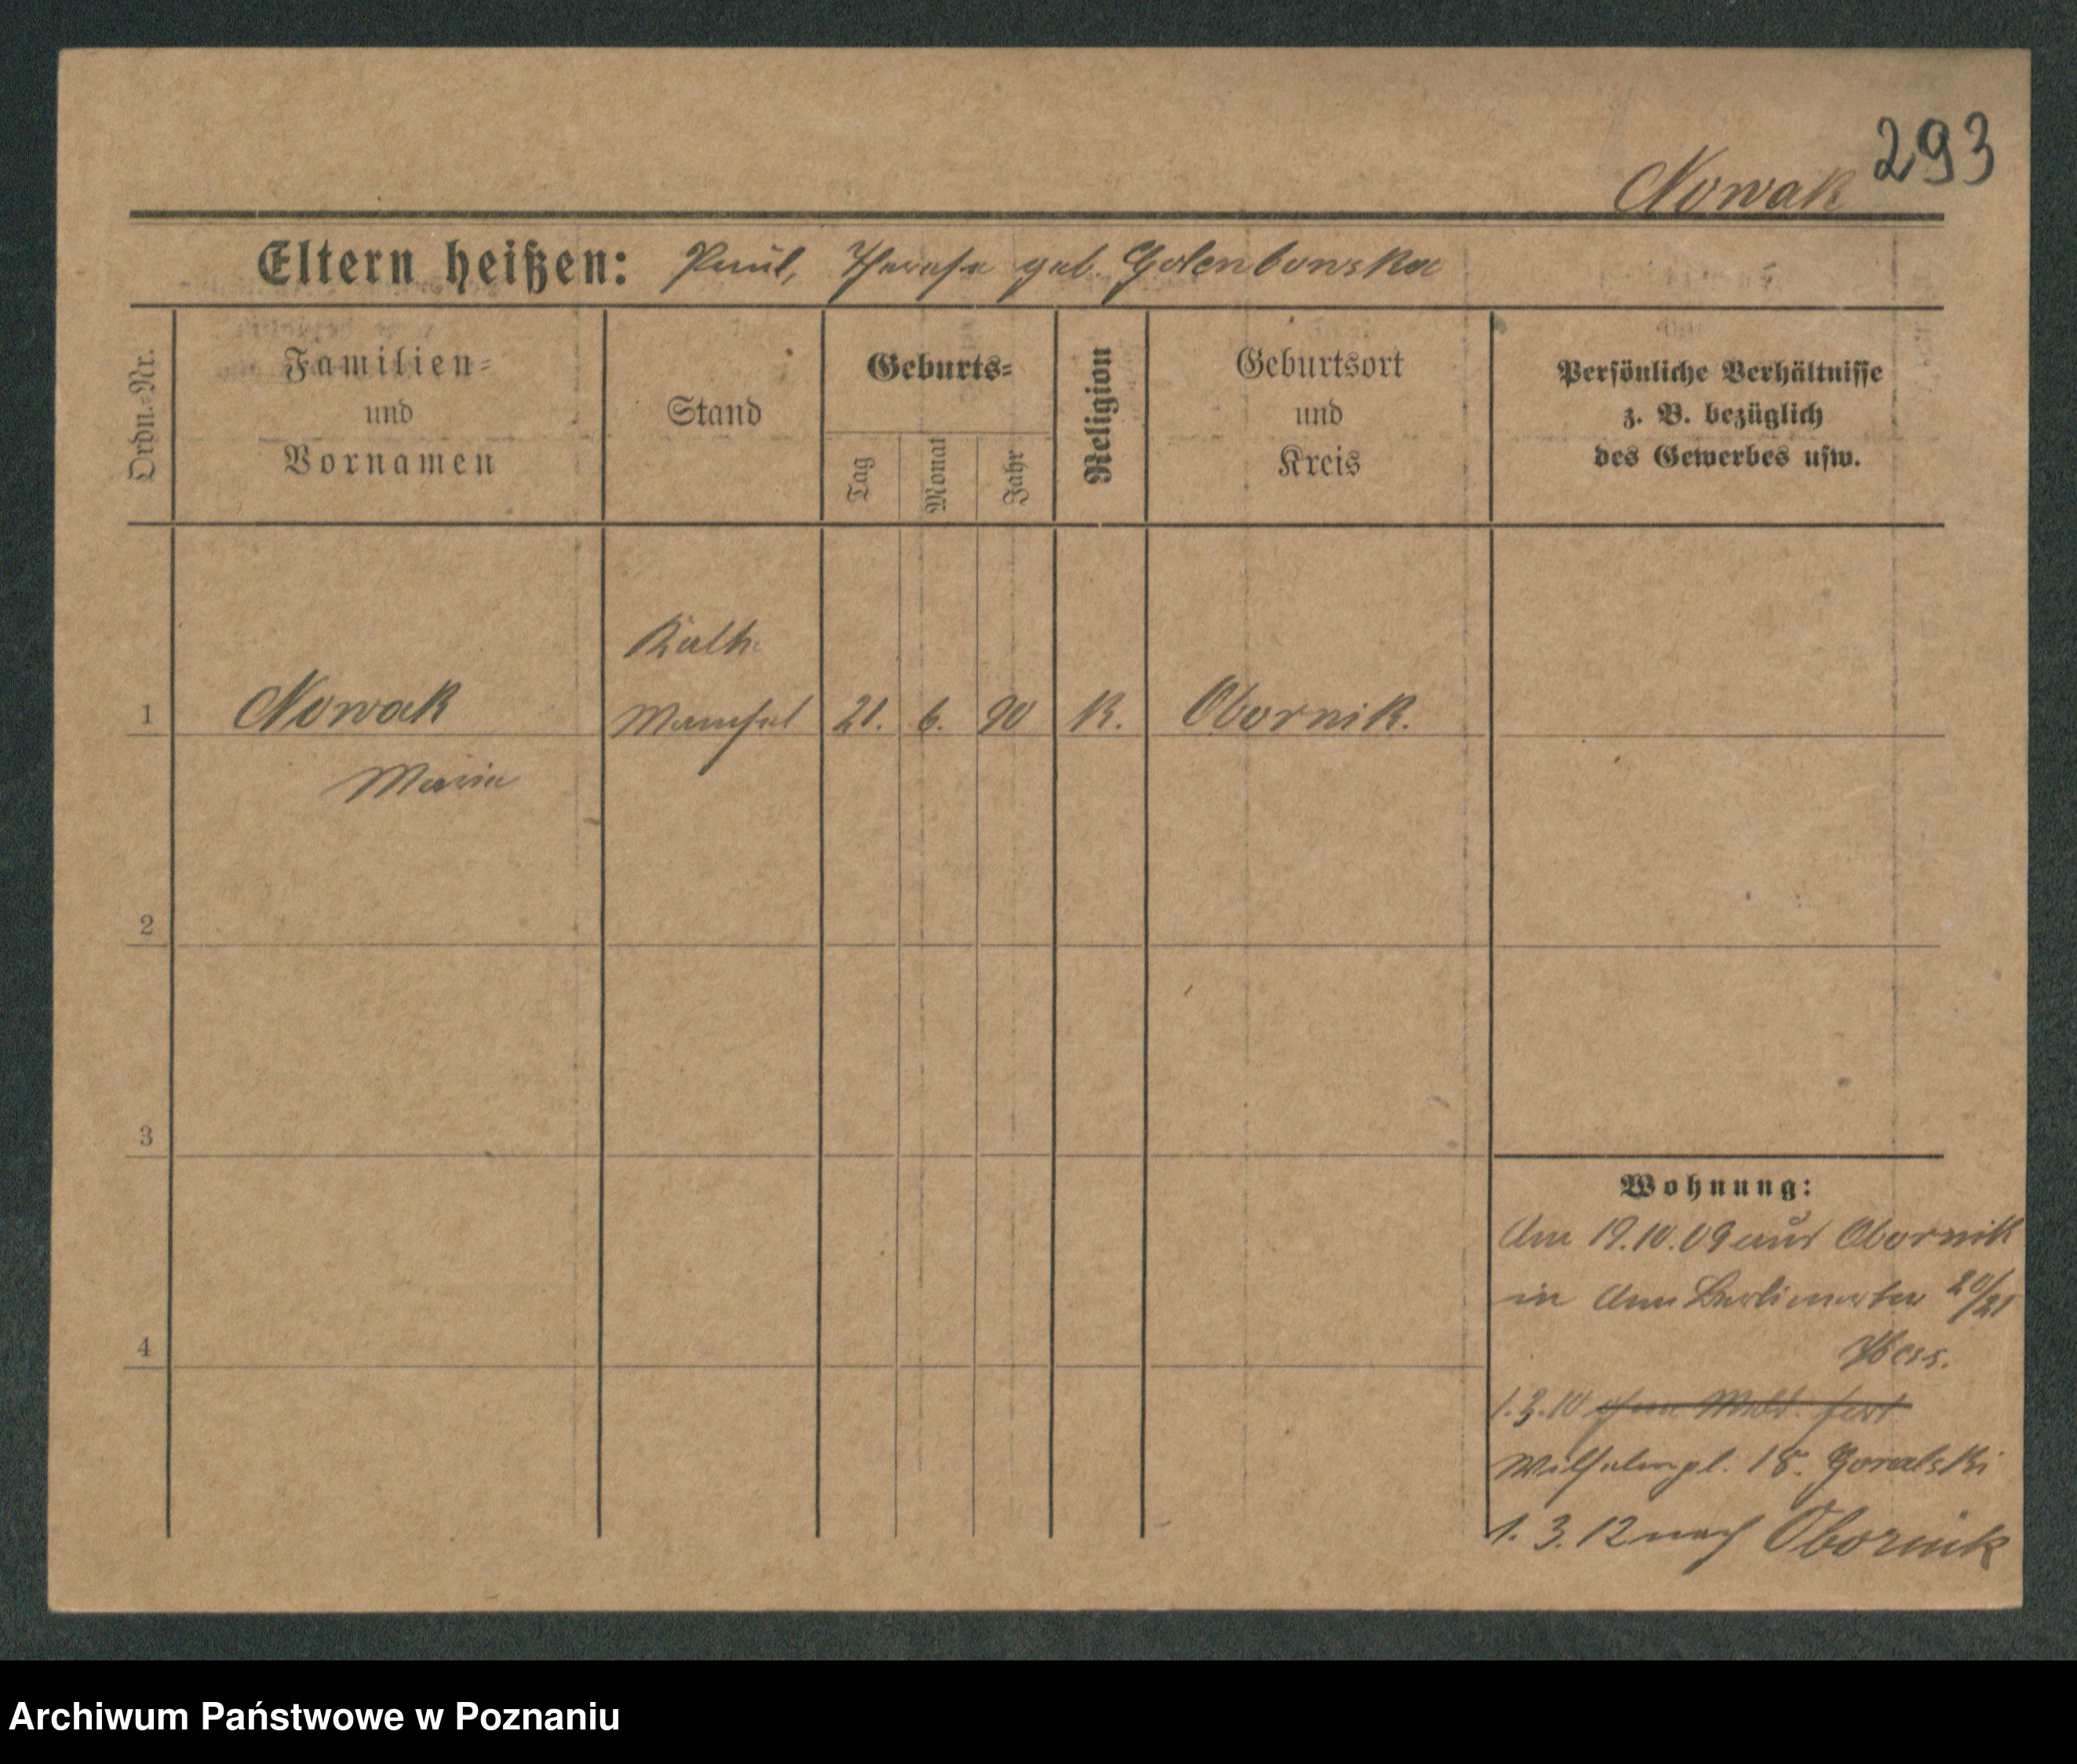 293
Nowak
Eltern heißen: Paul, Therese geb. Golenbowska
Ordn.-Nr.
Familien-
und
Vornamen
Stand
Geburts-
Tag
Monat
Jahr
Religion
Geburtsort
und
Kreis
Persönliche Verhältnisse
z. B. bezüglich
des Gewerbes usw.
Kalth.
1 Nowak Mamsel 21. 6. 90 K. Obornik.
Maria
2
3
4
Wohnung:
Am 19.10.09 aus Obornik
in Am Berlinertor 20/21
Hess.
1.3.10 ohne Meld. fort
Wilhelmpl. 18. Goralski
1. 3. 12 nach Obornik
Archiwum Państwowe w Poznaniu